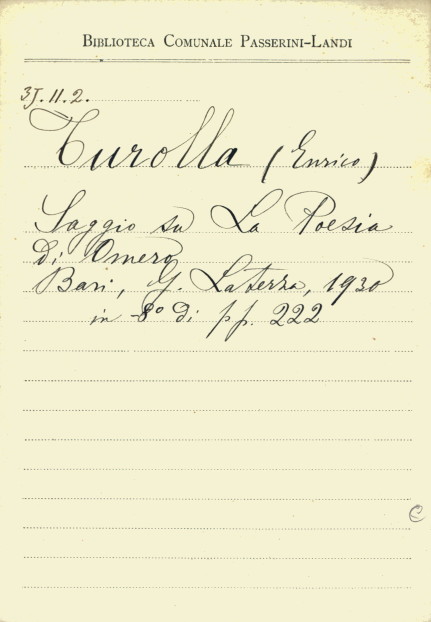 BIBLIOTECA COMUNALE PASSERINI-LANDI
3J.11.2.
Turolla (Enrico)
Saggio su La Poesia
di Omero
Bari, G. Laterza, 1930
in 8° di pp. 222
C